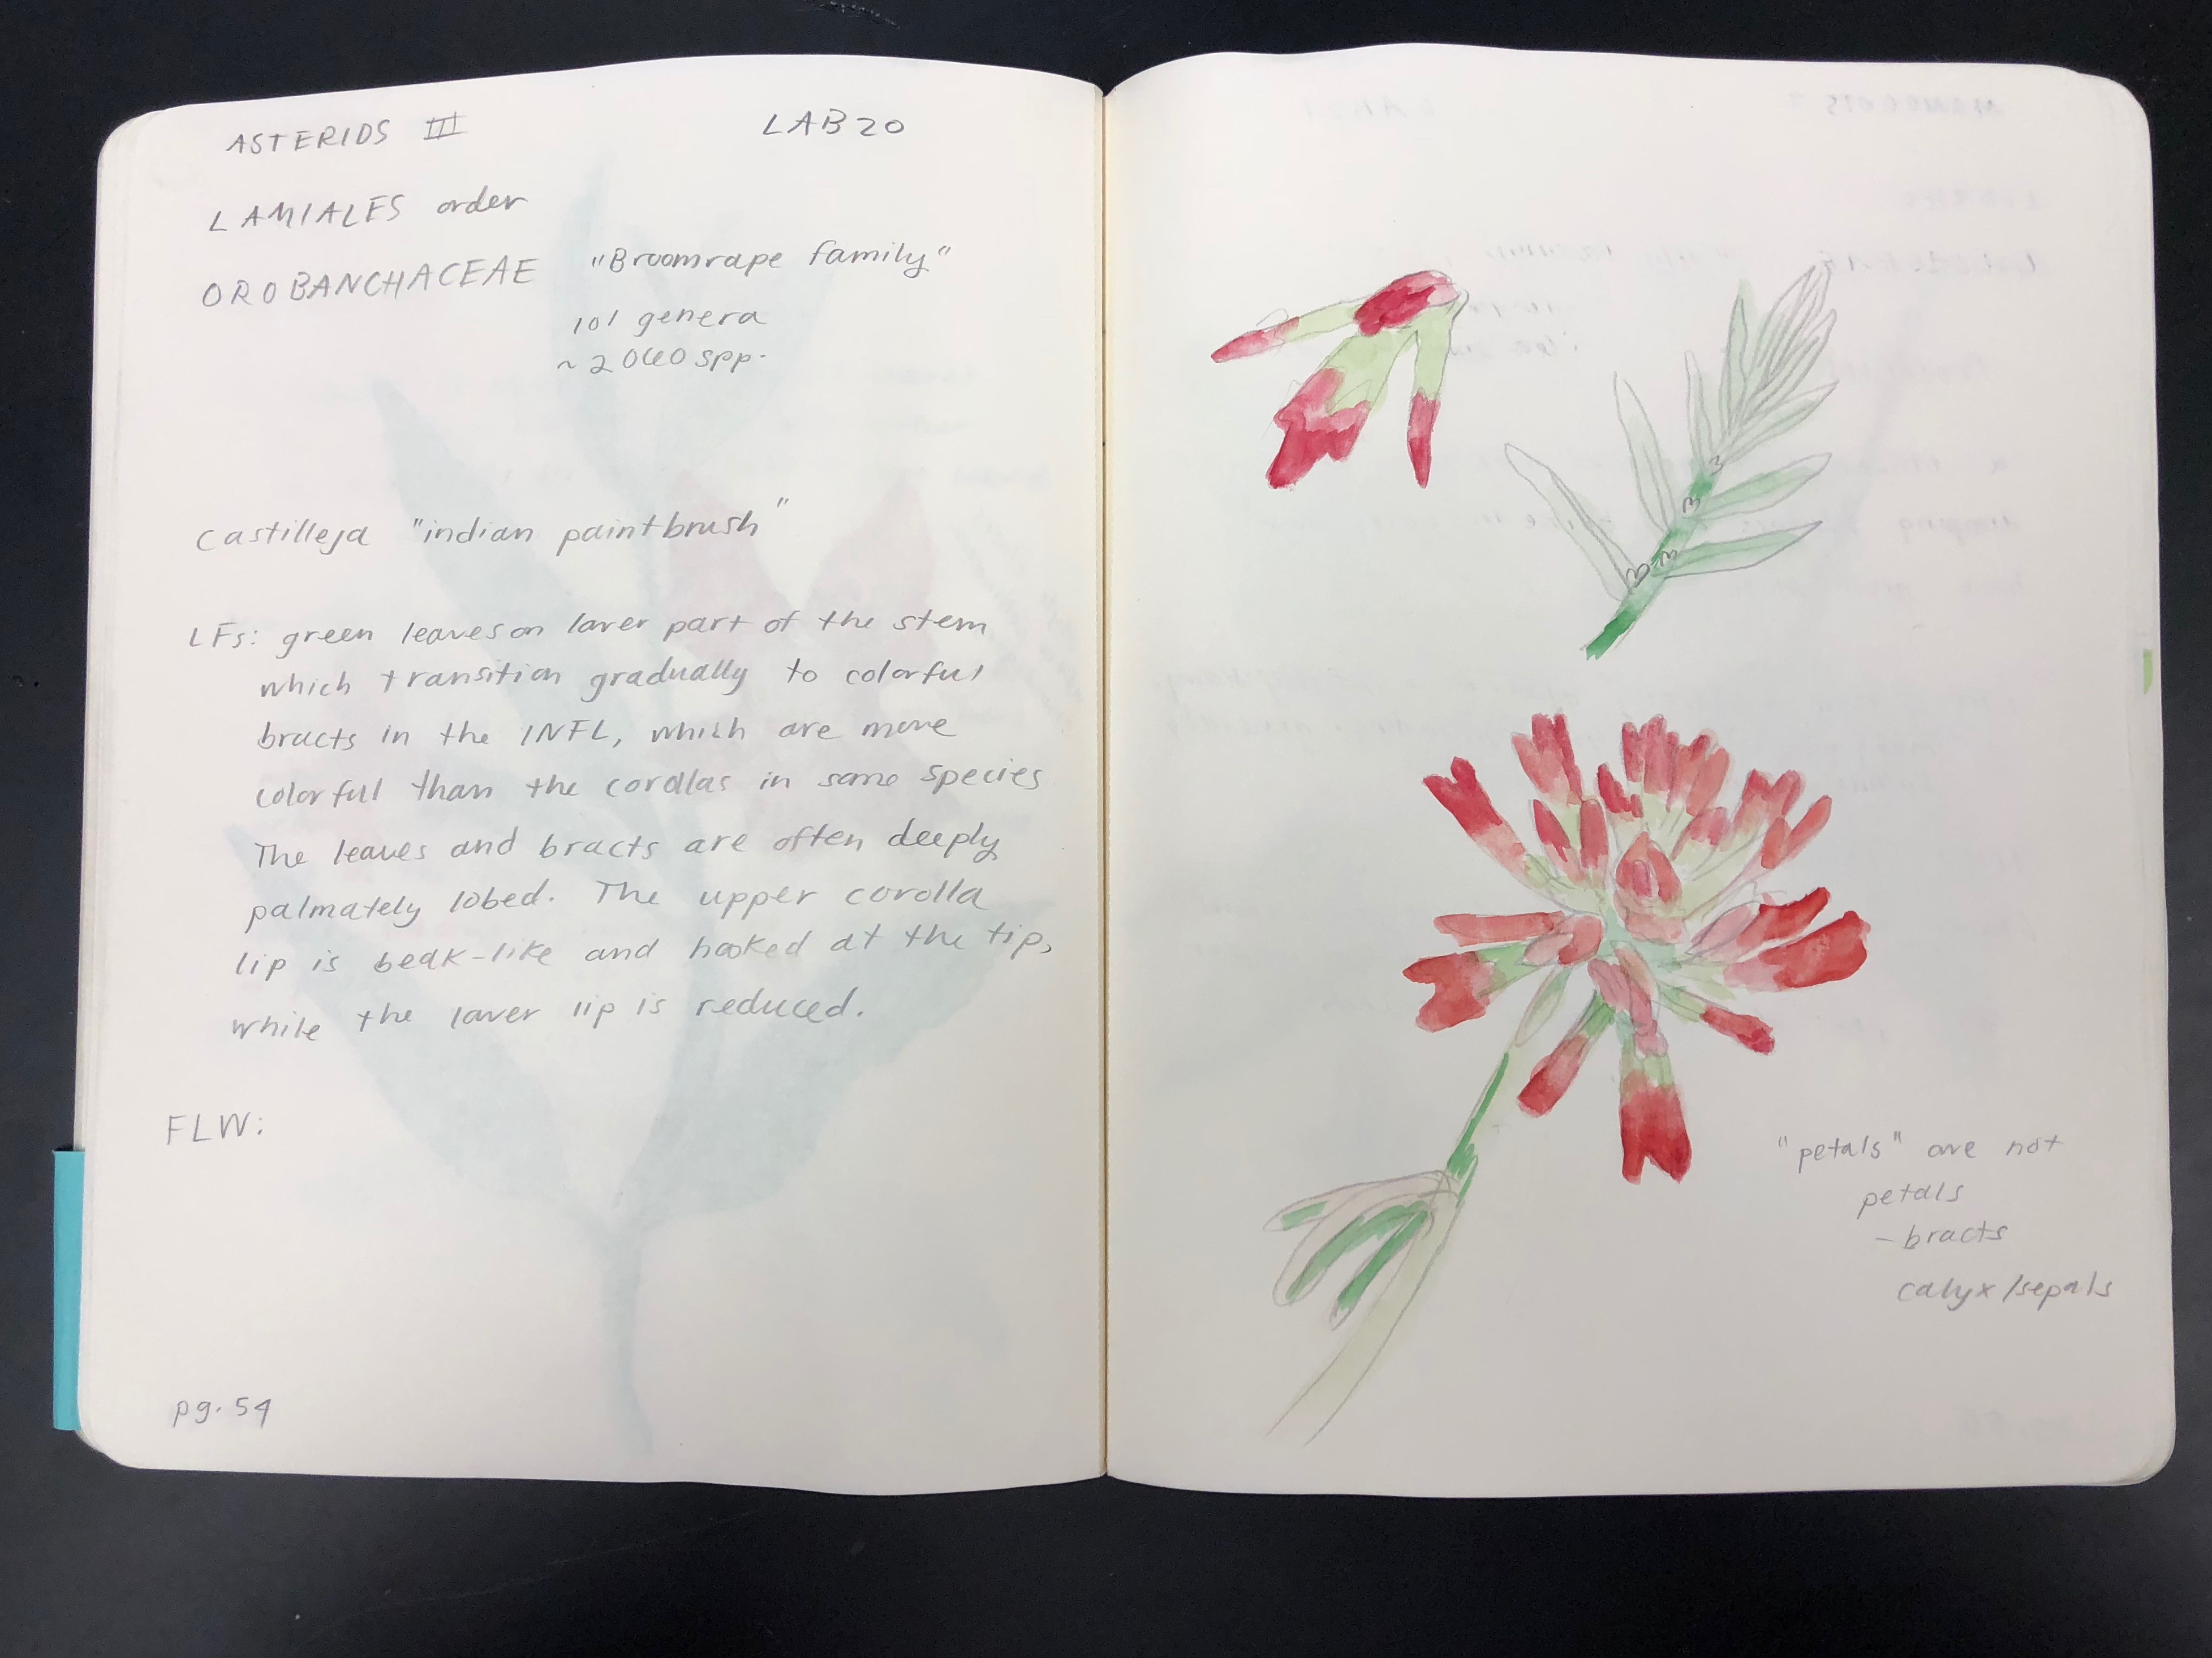 ASTERIDS III
LAB 20
LAMIALES order
OROBANCHACEAE "Broomrape family"
101 genera
~2060 spp.
Castilleja "indian paintbrush"
LFs: green leaves on lower part of the stem
which transition gradually to colorful
bracts in the INFL, which are more
colorful than the corollas in some species
The leaves and bracts are often deeply
palmately lobed. The upper corolla
lip is beak-like and hooked at the tip,
while the lower lip is reduced.
FLW:
pg. 54
"petals" are not
petals
- bracts
calyx/sepals